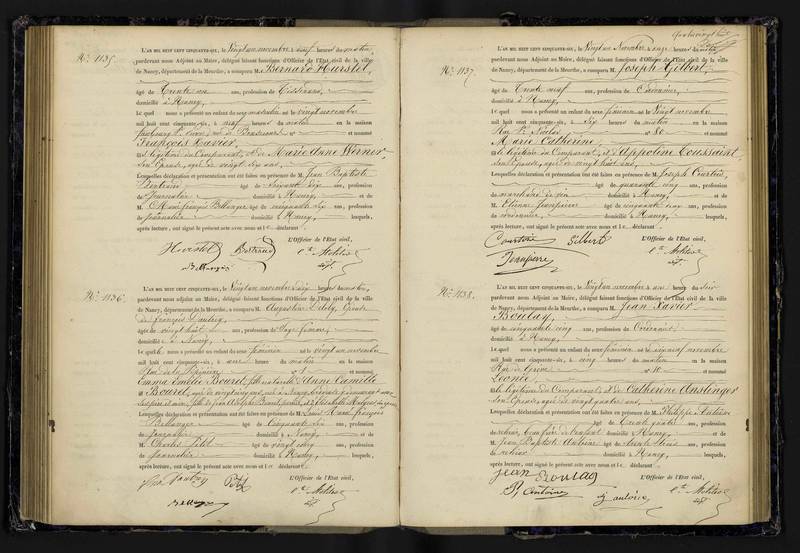 N.º 1135
L'AN MIL HUIT CENT CINQUANTE-SIX, le Vingt un novembre à neuf heures du matin,
pardevant nous Adjoint au Maire, délégué faisant fonctions d'Officier de l'État civil de la ville
de Nancy, département de la Meurthe, a comparu M. Bernard Hurstel,
âgé de Trente un ans, profession de Tisserand,
domicilié à Nancy,
Lequel nous a présenté un enfant du sexe masculin né le vingt novembre
mil huit cent cinquante-six, à neuf heures du matin en la maison
et nommé
François Xavier,
fils légitime du Comparant, et de Marie Anne Werner,
son Épouse, âgée de vingt six ans,
Lesquelles déclaration et présentation ont été faites en présence de M. Jean Baptiste
Bertrand âgé de Soixante dix ans, profession
de Journalier domicilié à Nancy, et de
M. François Bellanger âgé de cinquante six ans, profession
de journalier domicilié à Nancy, lesquels,
après lecture, ont signé le présent acte avec nous et le déclarant
L'Officier de l'État civil,
Hurstel Bertrand
Bellanger
N.º 1136
L'AN MIL HUIT CENT CINQUANTE-SIX, le Vingt un novembre à dix heures du matin,
pardevant nous Adjoint au Maire, délégué faisant fonctions d'Officier de l'État civil de la ville
de Nancy, département de la Meurthe, a comparu M. Augustine
de François
âgée de vingt huit ans, profession de Sage femme,
domiciliée à Nancy,
Laquelle nous a présenté un enfant du sexe féminin né le vingt novembre
mil huit cent cinquante-six, à heures du matin en la maison
Rue de la Pépinière n.º et nommé
Emma Emélie Bourel, fille naturelle d'Anne Camille
Bourel,
Lesquelles déclaration et présentation ont été faites en présence de M. François
Bellanger âgé de Cinquante six ans, profession
de journalier domicilié à Nancy, et de
M. Charles Petit âgé de vingt cinq ans, profession
de journalier domicilié à Nancy, lesquels,
après lecture, ont signé le présent acte avec nous et la déclarante
L'Officier de l'État civil,
Petit
Bellanger
N.º 1137
L'AN MIL HUIT CENT CINQUANTE-SIX, le Vingt un Novembre à onze heures du matin
pardevant nous Adjoint au Maire, délégué faisant fonctions d'Officier de l'État civil de la ville
de Nancy, département de la Meurthe, a comparu M. Joseph Gilbert,
âgé de Trente neuf ans, profession de Cordonnier,
domicilié à Nancy,
Lequel nous a présenté un enfant du sexe féminin né le Vingt novembre
mil huit cent cinquante-six, à Six heures du matin en la maison
Rue St. Nicolas n.º 80 et nommé
Marie Catherine,
fille légitime du Comparant, et d'Appoline Toussaint,
son Épouse, âgée de vingt huit ans,
Lesquelles déclaration et présentation ont été faites en présence de M. Joseph Courtois,
âgé de quarante cinq ans, profession
de marchand de vin domicilié à Nancy, et de
M. Etienne Jeanpierre âgé de cinquante cinq ans, profession
de cordonnier, domicilié à Nancy, lesquels,
après lecture, ont signé le présent acte avec nous et le déclarant
L'Officier de l'État civil,
Courtois Gilbert
Jeanpierre
N.º 1138.
L'AN MIL HUIT CENT CINQUANTE-SIX, le Vingt un novembre à une heure du soir
pardevant nous Adjoint au Maire, délégué faisant fonctions d'Officier de l'État civil de la ville
de Nancy, département de la Meurthe, a comparu M. Jean Xavier
Boulay,
âgé de cinquante cinq ans, profession de Cordonnier,
domicilié à Nancy,
Lequel nous a présenté un enfant du sexe féminin né le dix neuf novembre
mil huit cent cinquante-six, à cinq heures du matin en la maison
n.º 10 et nommé
Léonie,
fille légitime du Comparant, et de Catherine Anslinger
son Épouse, âgée de vingt quatre ans,
Lesquelles déclaration et présentation ont été faites en présence de M. Philippe Antoine
âgé de Trente quatre ans, profession
de relieur, domicilié à Nancy, et de
M. Jean Baptiste Antoine âgé de trente trois ans, profession
de relieur domicilié à Nancy, lesquels,
après lecture, ont signé le présent acte avec nous et le déclarant
L'Officier de l'État civil,
Jean Boulay
P. Antoine J. antoine